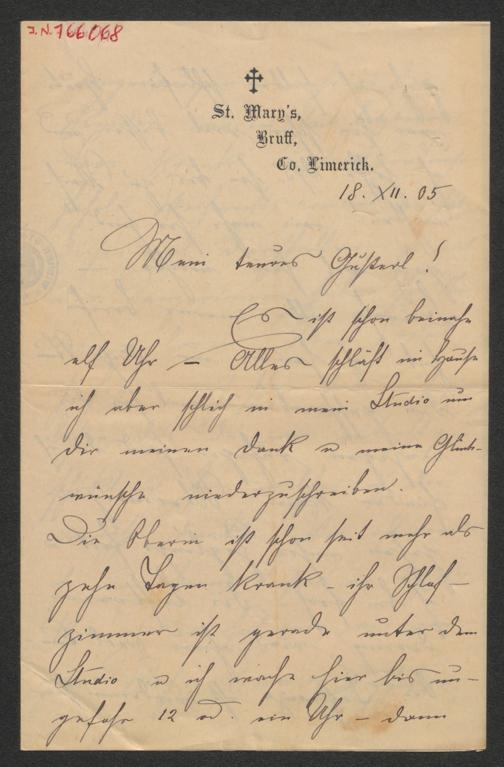 I.N. 766068
St. Mary's,
Bruff,
Co. Limerick.
18. XII. 05
Mein teures Gusterl!
Es ist schon beinahe
elf Uhr – Alles schläft im Hause
ich aber schlich in mein Studio um
Dir meinen Dank u meine Glück-
wünsche niederzuschreiben.
Die Oberin ist schon seit mehr als
zehn Tagen krank – ihr Schlaf-
zimmer ist gerade unter dem
Studio u ich wache hier bis un-
gefähr 12 od. ein Uhr – dann